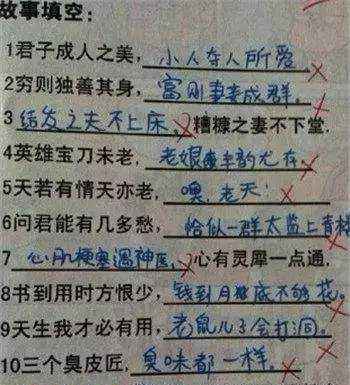 故事填空：
1君子成人之美，小人夺人所爱
2穷则独善其身，富则妻妾成群。
3结发之夫不上床，糟糠之妻不下堂.
4英雄宝刀未老，老娘风韵尤存。
5天若有情天亦老，噢，老天！
6问君能有几多愁，恰似一群太监上青楼
7心肌梗塞遇神医，心有灵犀一点通.
8书到用时方恨少，钱到月底不够花。
9天生我才必有用，老鼠儿子会打洞。
10三个臭皮匠，臭味都一样。